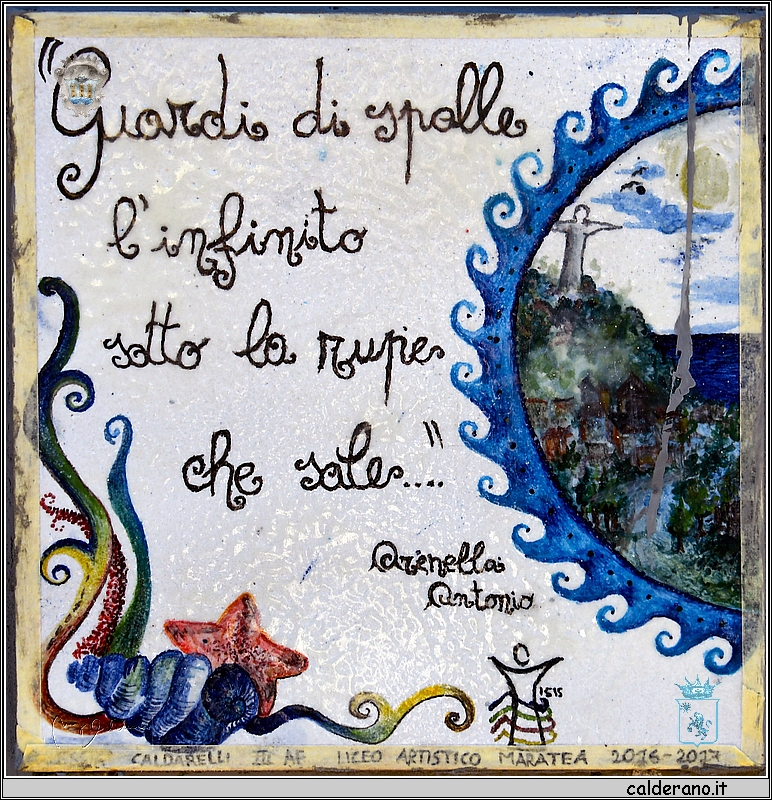 "Guardi di spalle
l'infinito
sotto la rupe
che sale...."
Arenella
Antonio
1515
CALDARELLI III AF LICEO ARTISTICO MARATEA 2016-2017
calderano.it